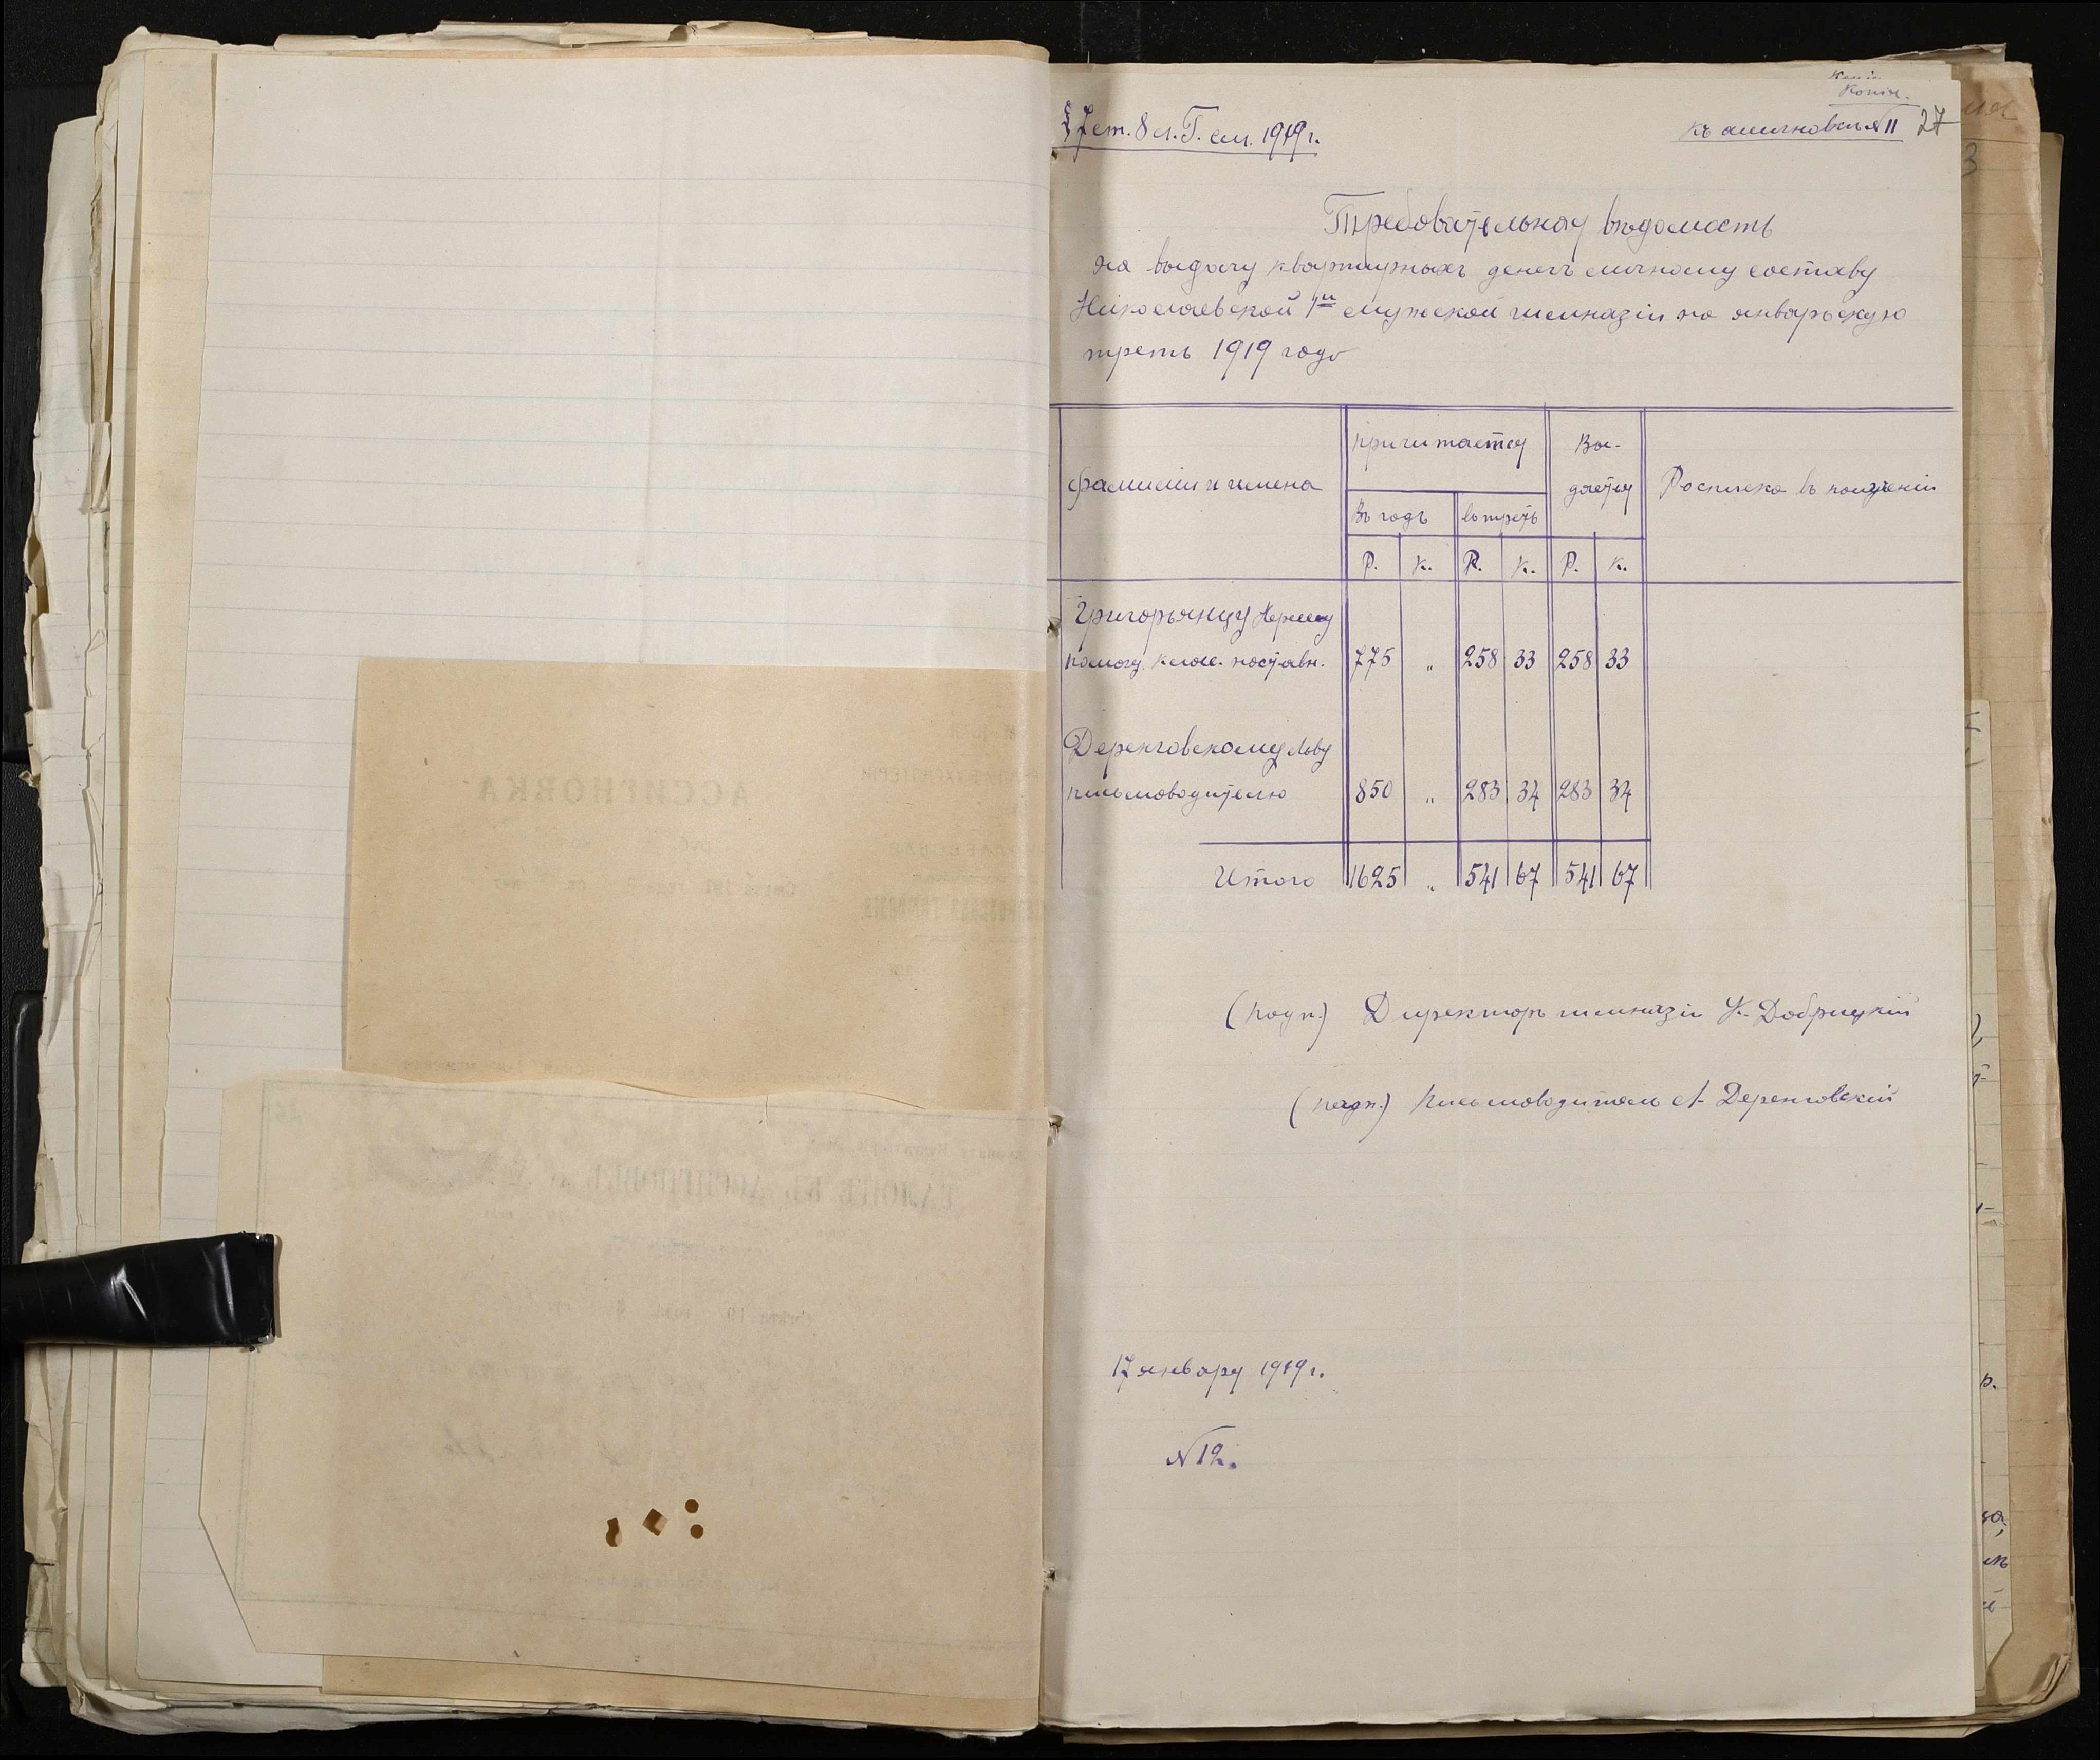 Копія.
§ 7 ст. 8 л. Г. см. 1919 г.
къ ассигновкѣ № 11 27
Требовательная вѣдомость
на выдачу квартирныхъ денегъ личному составу
Николаевской 1ой мужской гимназіи на январьскую
треть 1919 года
фамиліи и имена
причитается
Вы-
дается
Росписка въ полученіи
Въ годъ
въ треть
Р. К. Р. К. Р. К.
Григорьянцу
помощ. класс. наставн. 775 „ 258 33 258 33
Деренговскому Льву
письмоводителю 850 „ 283 34 283 34
Итого 1625 „ 541 67 541 67
(подп.) Директоръ гимназіи К. Добрицкій
(подп.) Письмоводитель Л. Деренговскій
17 января 1919 г.
№ 12.